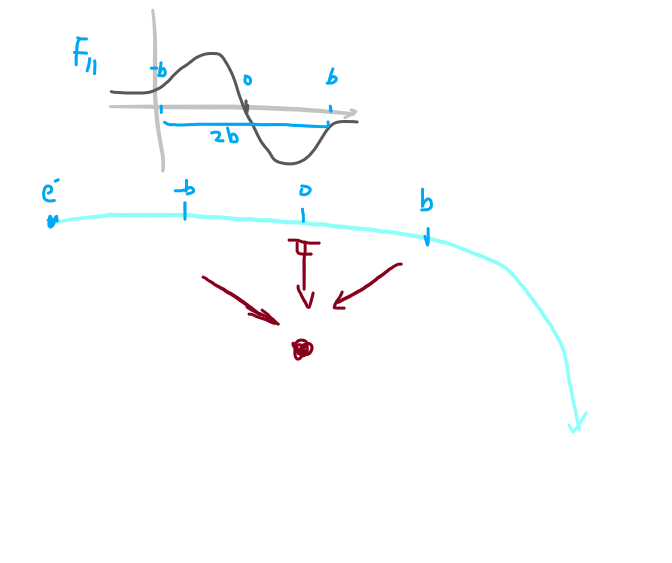 F||
-b 0 b
2b
e⁻ -b 0 b
F